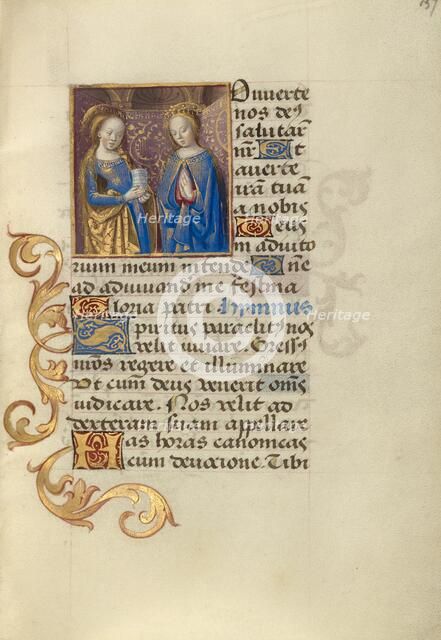 157
Onuerte
nos deꝰ
salutar
nr̄ Et
auerte
irā tuā
a nobis
Deus
in adiuto
rium meum intende Dn̄e
ad adiuuand me festina
Gloria patri Hympnus
Spiritus paraclitꝰ nos
velit iuuare. Gress
nros regere et illuminare
Vt cum deus venerit omēs
iudicare. Nos velit ad
dexteram suam appellare
Has horas canonicas
cum deuocione. Tibi
Heritage
Heritage
Heritage
Heritage
Heritage
Images